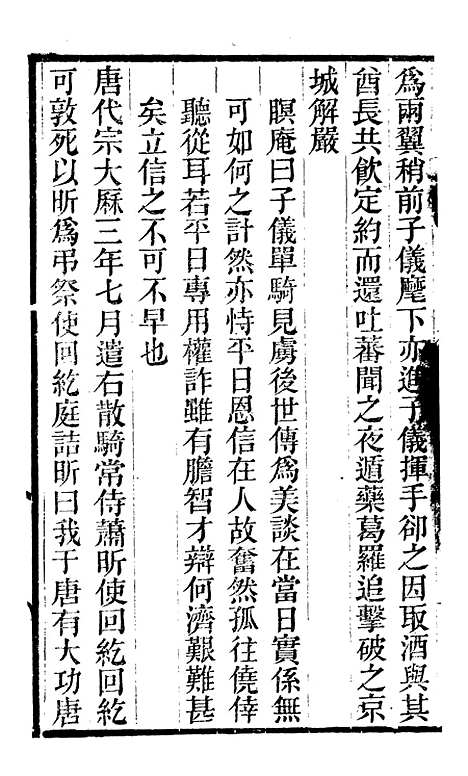 爲兩翼稍前子儀麾下亦進子儀揮手卻之因取酒與其
酋長共飮定約而還吐蕃聞之夜遁藥葛羅追擊破之京
城解嚴
瞑庵曰子儀單騎見虜後世傳爲美談在當日實係無
可如何之計然亦恃平日恩信在人故奮然孤往僥倖
聽從耳若平日專用權詐雖有膽智才辯何濟艱難甚
矣立信之不可不早也
唐代宗大厤三年七月遣右散騎常侍蕭昕使回紇回紇
可敦死以昕爲弔祭使回紇庭詰昕曰我于唐有大功唐